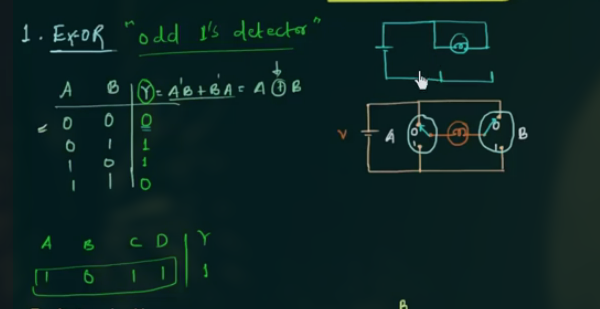 1. EXOR "odd 1's detector"
A B Y = A'B + B'A = A ⊕ B
0 0 0
0 1 1
1 0 1
1 1 0
V A 0 1 0 1 B
A B C D Y
1 0 1 1 1
B